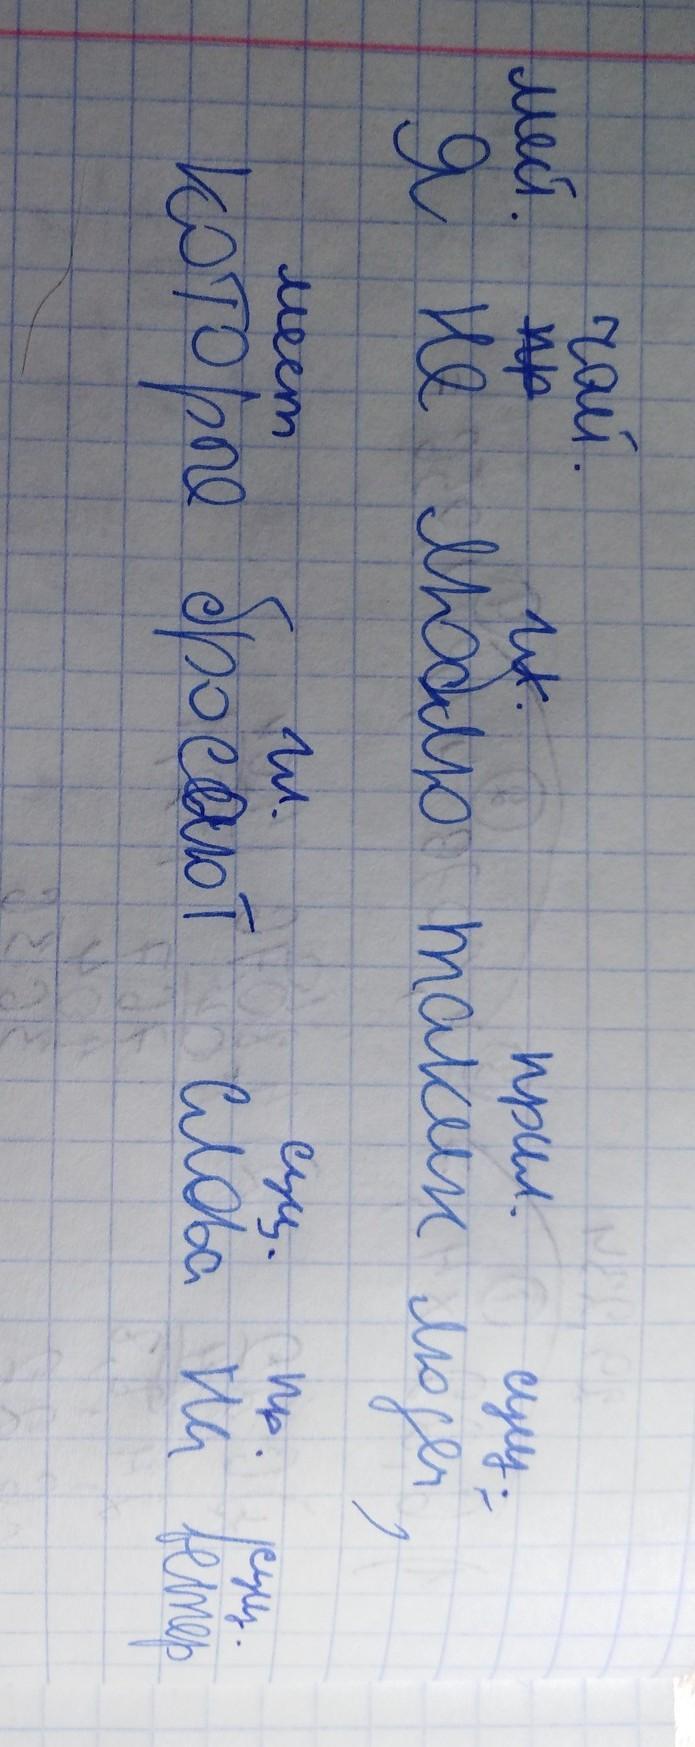 част.
мест. пр гл. прил. сущ.
Я не люблю таких людей,
мест гл. сущ. пр. сущ.
которые бросают слова на ветер